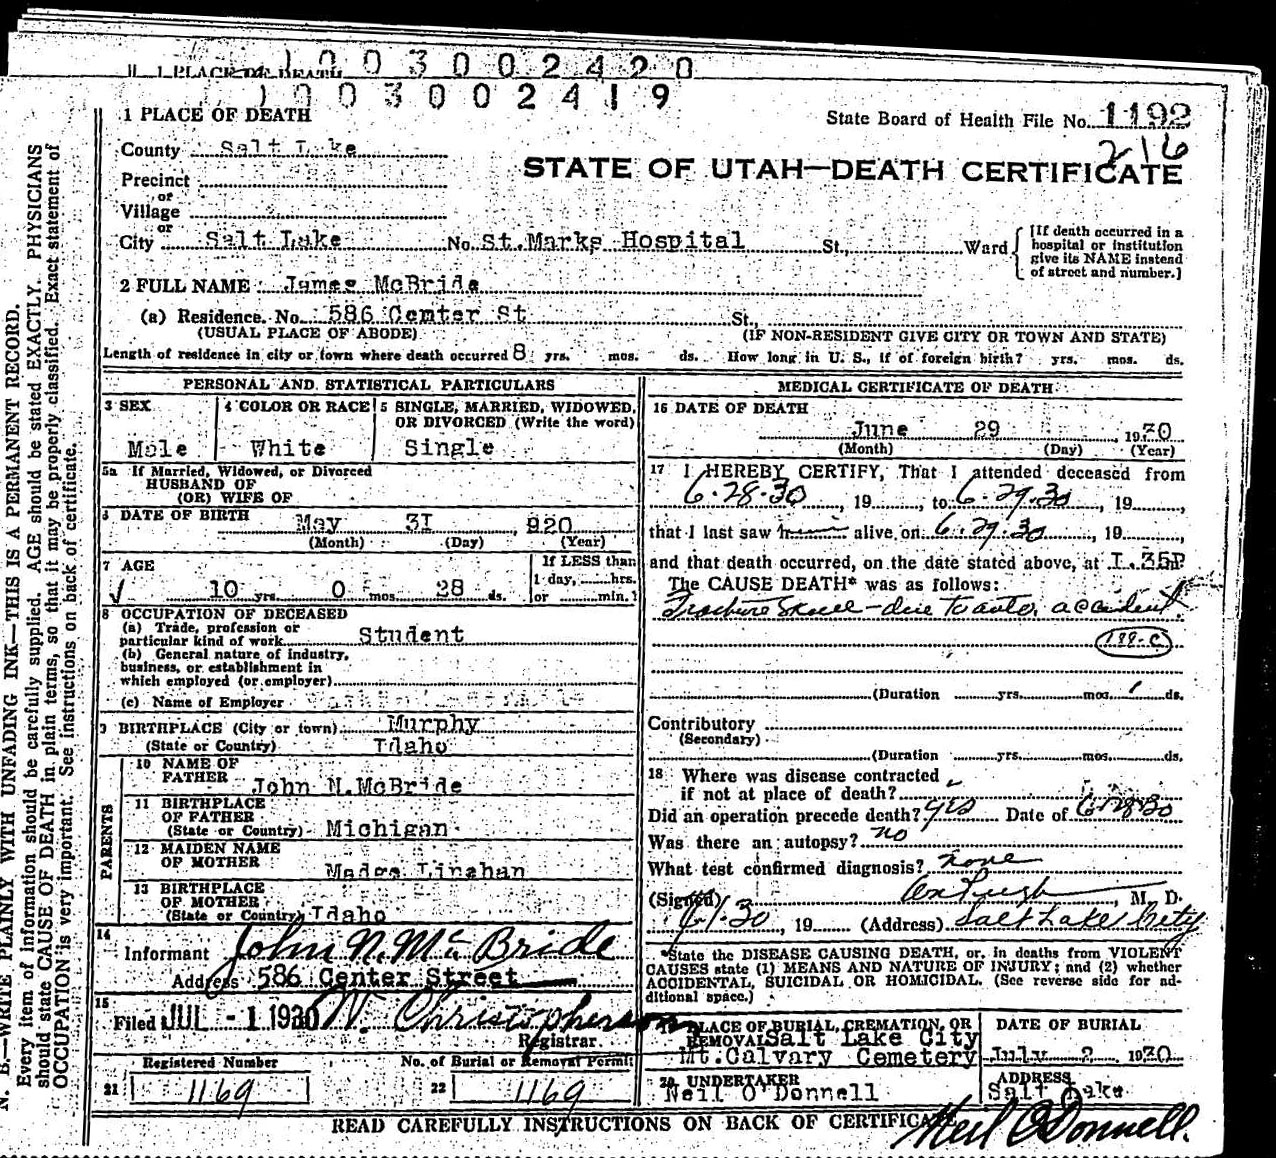 1 PLACE OF DEATH
1003002420
1003002419
1 PLACE OF DEATH
State Board of Health File No. 1192
216
County Salt Lake
STATE OF UTAH—DEATH CERTIFICATE
Precinct
or
Village
or
City Salt Lake No. St.Marks Hospital St., Ward
[If death occurred in a
hospital or institution
give its NAME instead
of street and number.]
2 FULL NAME James McBride
(a) Residence. No. 586 Center St St.
(USUAL PLACE OF ABODE) (IF NON-RESIDENT GIVE CITY OR TOWN AND STATE)
Length of residence in city or town where death occurred 8 yrs. mos. ds. How long in U. S., if of foreign birth? yrs. mos. ds.
PERSONAL AND STATISTICAL PARTICULARS
3 SEX
4 COLOR OR RACE
5 SINGLE, MARRIED, WIDOWED,
OR DIVORCED (Write the word)
Male White Single
5a If Married, Widowed, or Divorced
HUSBAND OF
(OR) WIFE OF
6 DATE OF BIRTH May 3I, 920
(Month) (Day) (Year)
7 AGE
If LESS than
1 day, hrs.
or min.?
10 yrs. 0 mos. 28 ds.
8 OCCUPATION OF DECEASED
(a) Trade, profession or
particular kind of work Student
(b) General nature of industry,
business, or establishment in
which employed (or employer)
(c) Name of Employer
9 BIRTHPLACE (City or town) Murphy
(State or Country) Idaho
PARENTS
10 NAME OF
FATHER John N.McBride
11 BIRTHPLACE
OF FATHER
(State or Country) Michigan
12 MAIDEN NAME
OF MOTHER Madge Linahan
13 BIRTHPLACE
OF MOTHER
(State or Country) Idaho
14
Informant John N. McBride
Address 586 Center Street
15
Filed JUL - 1 1930 N. Christopherson
Registrar
Registered Number No. of Burial or Removal Permit
21 1169 22 1169
MEDICAL CERTIFICATE OF DEATH
16 DATE OF DEATH
June 29, 1930
(Month) (Day) (Year)
17 I HEREBY CERTIFY, That I attended deceased from
6.28.30, 19, to 6.29.30, 19,
that I last saw h alive on 6.29.30, 19,
and that death occurred, on the date stated above, at I.35P
The CAUSE DEATH* was as follows:
Fracture Skull - due to auto accident.
188-c
(Duration yrs. mos. 1 ds.
Contributory
(Secondary)
(Duration yrs. mos. ds.
18 Where was disease contracted
if not at place of death?
Did an operation precede death? yes Date of 6-28-30
Was there an autopsy? no
What test confirmed diagnosis? none
(Signed) M. D.
19 (Address) Salt Lake City
*State the DISEASE CAUSING DEATH, or, in deaths from VIOLENT
CAUSES state (1) MEANS AND NATURE OF INJURY; and (2) whether
ACCIDENTAL, SUICIDAL OR HOMICIDAL. (See reverse side for ad-
ditional space.)
19 PLACE OF BURIAL, CREMATION, OR
REMOVAL Salt Lake City
Mt.Calvary Cemetery
DATE OF BURIAL
July 2 1930
20 UNDERTAKER
Neil O'Donnell
ADDRESS
Salt Lake
READ CAREFULLY INSTRUCTIONS ON BACK OF CERTIFICATE
Neil O'Donnell.
N. B.—WRITE PLAINLY WITH UNFADING INK—THIS IS A PERMANENT RECORD.
Every item of information should be carefully supplied. AGE should be stated EXACTLY. PHYSICIANS
should state CAUSE OF DEATH in plain terms, so that it may be properly classified. Exact statement of
OCCUPATION is very important. See instructions on back of certificate.